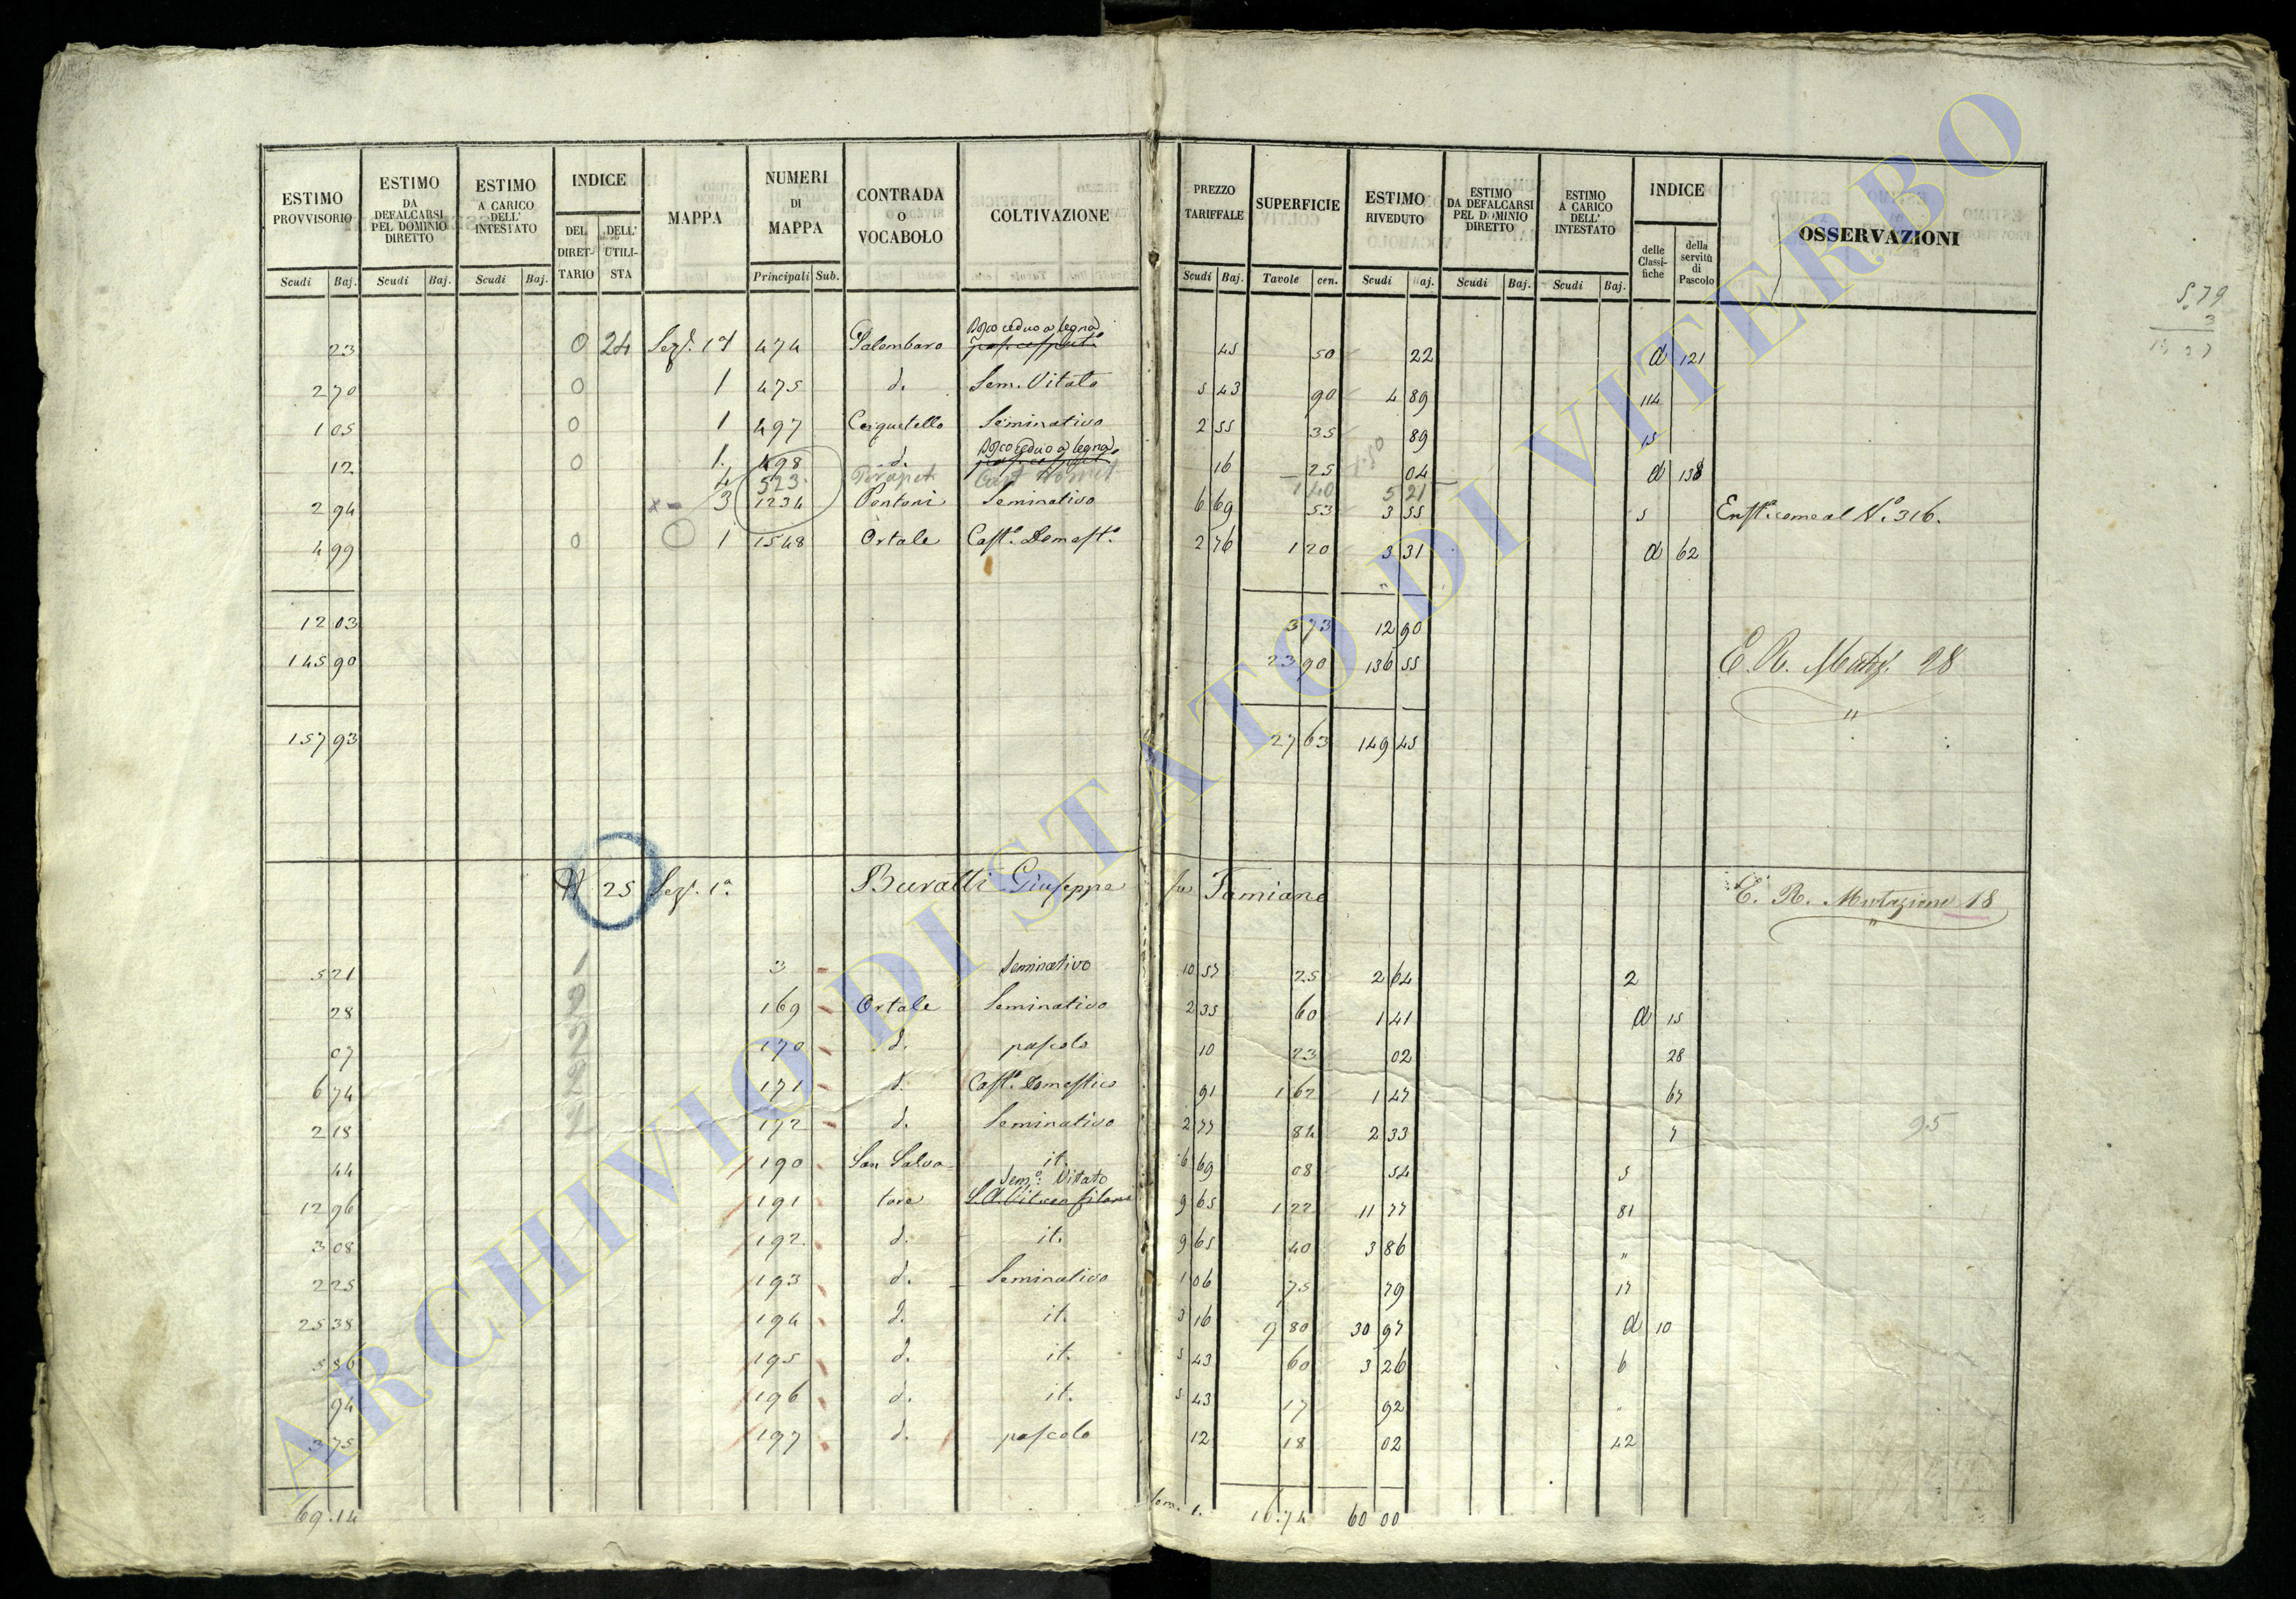 ESTIMO PROVVISORIO Scudi Baj. ESTIMO DA DEFALCARSI PEL DOMINIO DIRETTO Scudi Baj. ESTIMO A CARICO DELL' INTESTATO Scudi Baj. INDICE DEL DIRETTARIO DELL' UTILISTA MAPPA NUMERI DI MAPPA Principali Sub. CONTRADA O VOCABOLO COLTIVAZIONE PREZZO TARIFFALE Scudi Baj. SUPERFICIE Tavole cen. ESTIMO RIVEDUTO Scudi Baj. ESTIMO DA DEFALCARSI PEL DOMINIO DIRETTO Scudi Baj. ESTIMO A CARICO DELL' INTESTATO Scudi Baj. INDICE delle Classifiche della servitù di Pascolo OSSERVAZIONI
5,79
3
Bosco ceduo a legna
23 0 24 Sez. 1ª 474 Palombaro 45 50 22 d 121
2 70 0 1 475 d. Sem. Vitato 5 43 90 4 89 114
1 05 0 1 497 Cerquetello Seminativo 2 55 35 89 15
Bosco ceduo a legna
12 0 1. 498 d. 16 25 04 d 138
4 523 1 40 5 21
2 94 3 1234 Pontoni Seminativo 6 69 53 3 55 5 Enfit. come al N.° 316.
4 99 0 1 1548 Ortale Cast.° Domest.° 2 76 1 20 3 31 d 62
12 03 3 73 12 90
145 90 23 90 136 55 E. R. Mutaz. 28
157 93 27 63 149 45
25 Sez. 1ª Buratti Giuseppe fu Famiano E. R. Mutazione 18
5 21 1 3 Seminativo 10 57 25 2 64 2
28 2 169 Ortale Seminativo 2 35 60 1 41 d 15
07 2 170 d. pascolo 10 23 02 28
6 74 2 171 d. Cast.° Domestico 91 1 62 1 47 67
2 18 2 172 d. Seminativo 2 77 84 2 33 7
44 190 San Salva- it. 6 69 08 54 5
Sem.° Vitato
12 96 191 tore 9 65 1 22 11 77 81
3 08 192 d. it. 9 65 40 3 86 "
2 25 193 d. Seminativo 1 06 75 79 17
25 38 194 d. it. 3 16 9 80 30 97 d 10
5 86 195 d. it. 5 43 60 3 26 6
94 196 d. it. 5 43 17 92 "
3 75 197 d. pascolo 12 18 02 42
69.14 1. 16.74 60 00
95
ARCHIVIO DI STATO DI VITERBO